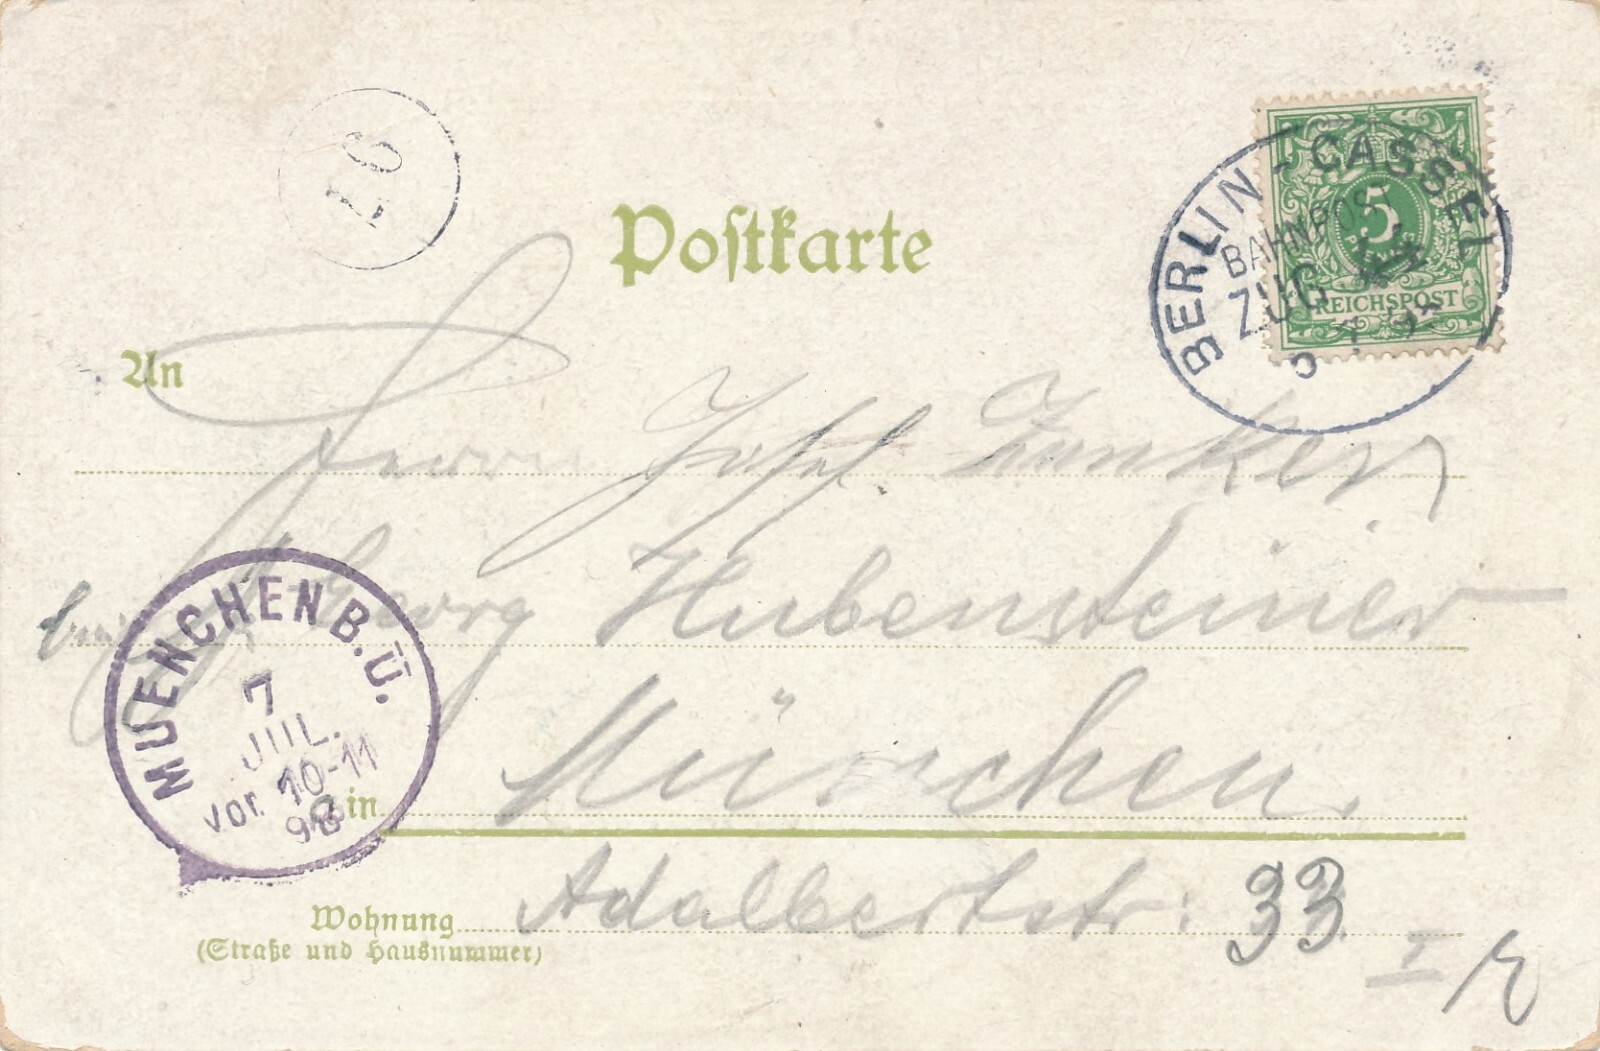 16
Postkarte
BERLIN - CASSEL
BAHNPOST
ZUG
5 7
5
PFENNIG
REICHSPOST
An
Herrn Josef Junker
Georg Hubensteiner
MUENCHEN B.Ü.
7
JUL.
Vor. 10-11
98
in München.
Wohnung Adalbertstr: 33
(Straße und Hausnummer)
I